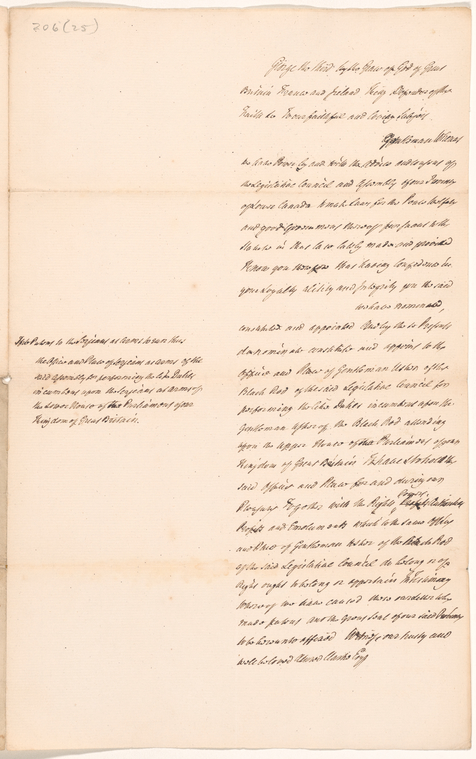 206 (25)
George the third by the Grace of God of Great
Britain France and Ireland King Defender of the
Faith To Our faithful and loving Subject
Gentleman Whereas
we have Power by and with the Advice and Consent of
the Legislative Council and Assembly of our Province
of Lower Canada to make Laws for the Peace Welfare
and good Government thereof pursuant to the
Statute in that case lately made and provided
Know you therefore that having Confidence in
your Loyalty ability and Integrity you the said
we have nominated,
constituted and appointed And by these Presents
do nominate constitute and appoint to the
Office and Place of Gentleman Usher of the
Black Rod of the said Legislative Council for
performing the like Duties incumbent upon the
Gentleman Usher of the Black Rod attending
upon the Upper House of the Parliament of our
Kingdom of Great Britain To have & to hold the
said Office and Place for and during our
Pleasure Together with the Rights
Profits and Emoluments which to the same Office
and Place of Gentleman Usher of the Black Rod
of the said Legislative Council do belong or of
Right ought to belong or appertain In Testimony
Whereof we have caused these our Letters to be
made patent and the great Seal of our said Province
to be hereunto affixed Witness our trusty and
well beloved Alured Clarke Esqr
to the Serjeant at Arms
the Office and Place of Serjeant at Arms of the
said Assembly for performing the like Duties
incumbent upon the Serjeant at Arms of
the Lower House of the Parliament of our
Kingdom of Great Britain.